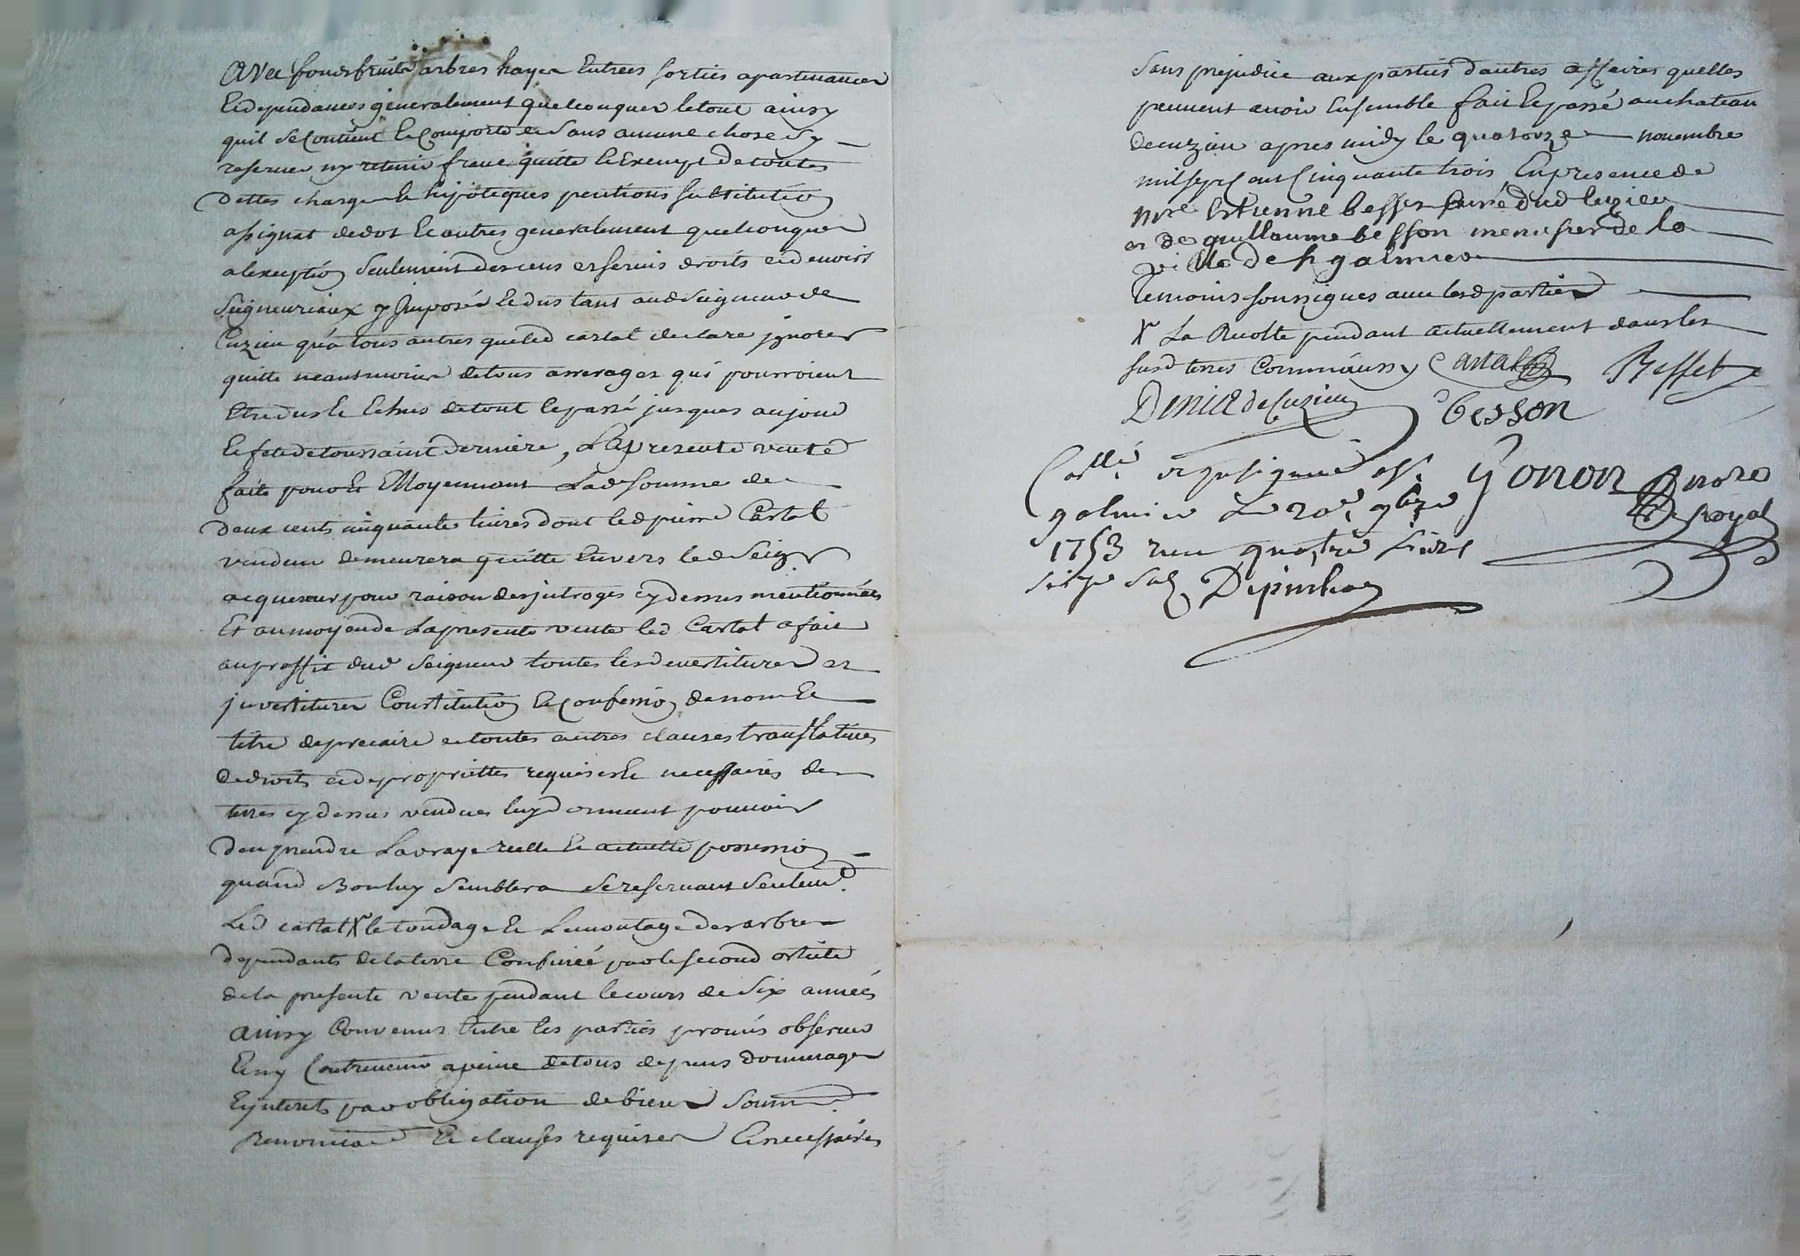 avec fonds fruits arbres hayes Entrees sorties apartenances
Et dependances generalement quelconques le tout ainsy
quil se Contient Et Comporte et sans aucune chose sy
reserver ny retenir franc quitte Et Exempt de toutes
dettes charges Et hipoteques pentions substitution
assignat de dot Et autres generalement quelconques
a lexception seulement des cens et servis droits et devoirs
seigneuriaux y Imposés Et dus tant aud Seigneur de
Cuzieu qu'a tous autres que led cartal declare ignorer
quitte neantmoins de tous arrerages qui pourroient
Etre dus Et Echus de tout le passé jusques au jour
Et fete de toussaint derniere, La presente vente
faite pour Et Moyennant Lad somme de
deux cents cinquante livres dont led pierre Cartal
vendeur demeurera quitte Envers led Seigr
acquereur pour raison des jntroges cy dessus mentionnés
Et au moyen de La presente vente led Cartal a fait
au proffit dud Seigneur toutes les devestitures et
jnvestitures Constitution Et Confession de nom Et
titre de precaire et toutes autres clauses translatives
de droits et de propriettes requises Et necessaires des
terres cy dessus vendues luy donnant pouvoir
d'en prendre La vraye reelle Et actuelle possession
quand Bon luy semblera se reservant seulemt
Led cartal X le tondage Et Lemontage des arbres
dependants de la terre Confinée par le second article
de la presente vente pendant le cours de six années
ainsy Convenus Entre les parties promis observer
Et ny Contrevenir a peine de tous depens dommages
Et jnterets par obligation de biens soumd
renonciad Et clauses requises Et necessaires
sans prejudice aux parties d'autres affaires quelles
peuvent avoir Ensemble fait Et passé au chateau
de cuzieu apres midy le quatorze novembre
mil sept cent Cinquante trois En presence de
mre Estienne besset curé dud cuzieu
et de guillaume besson menusier de la
ville de st galmier
temoins soussignes avec lesd parties
X La Recolte pendant actuellement dans les
susd terres Comme aussy Cartal Besset
Denis de Cuzieu besson
Collé et jnsinué a st
galmier Le 20e 9bre Gonon Nore
1753 reçu quatre livres Royal
seize sols Depinhac